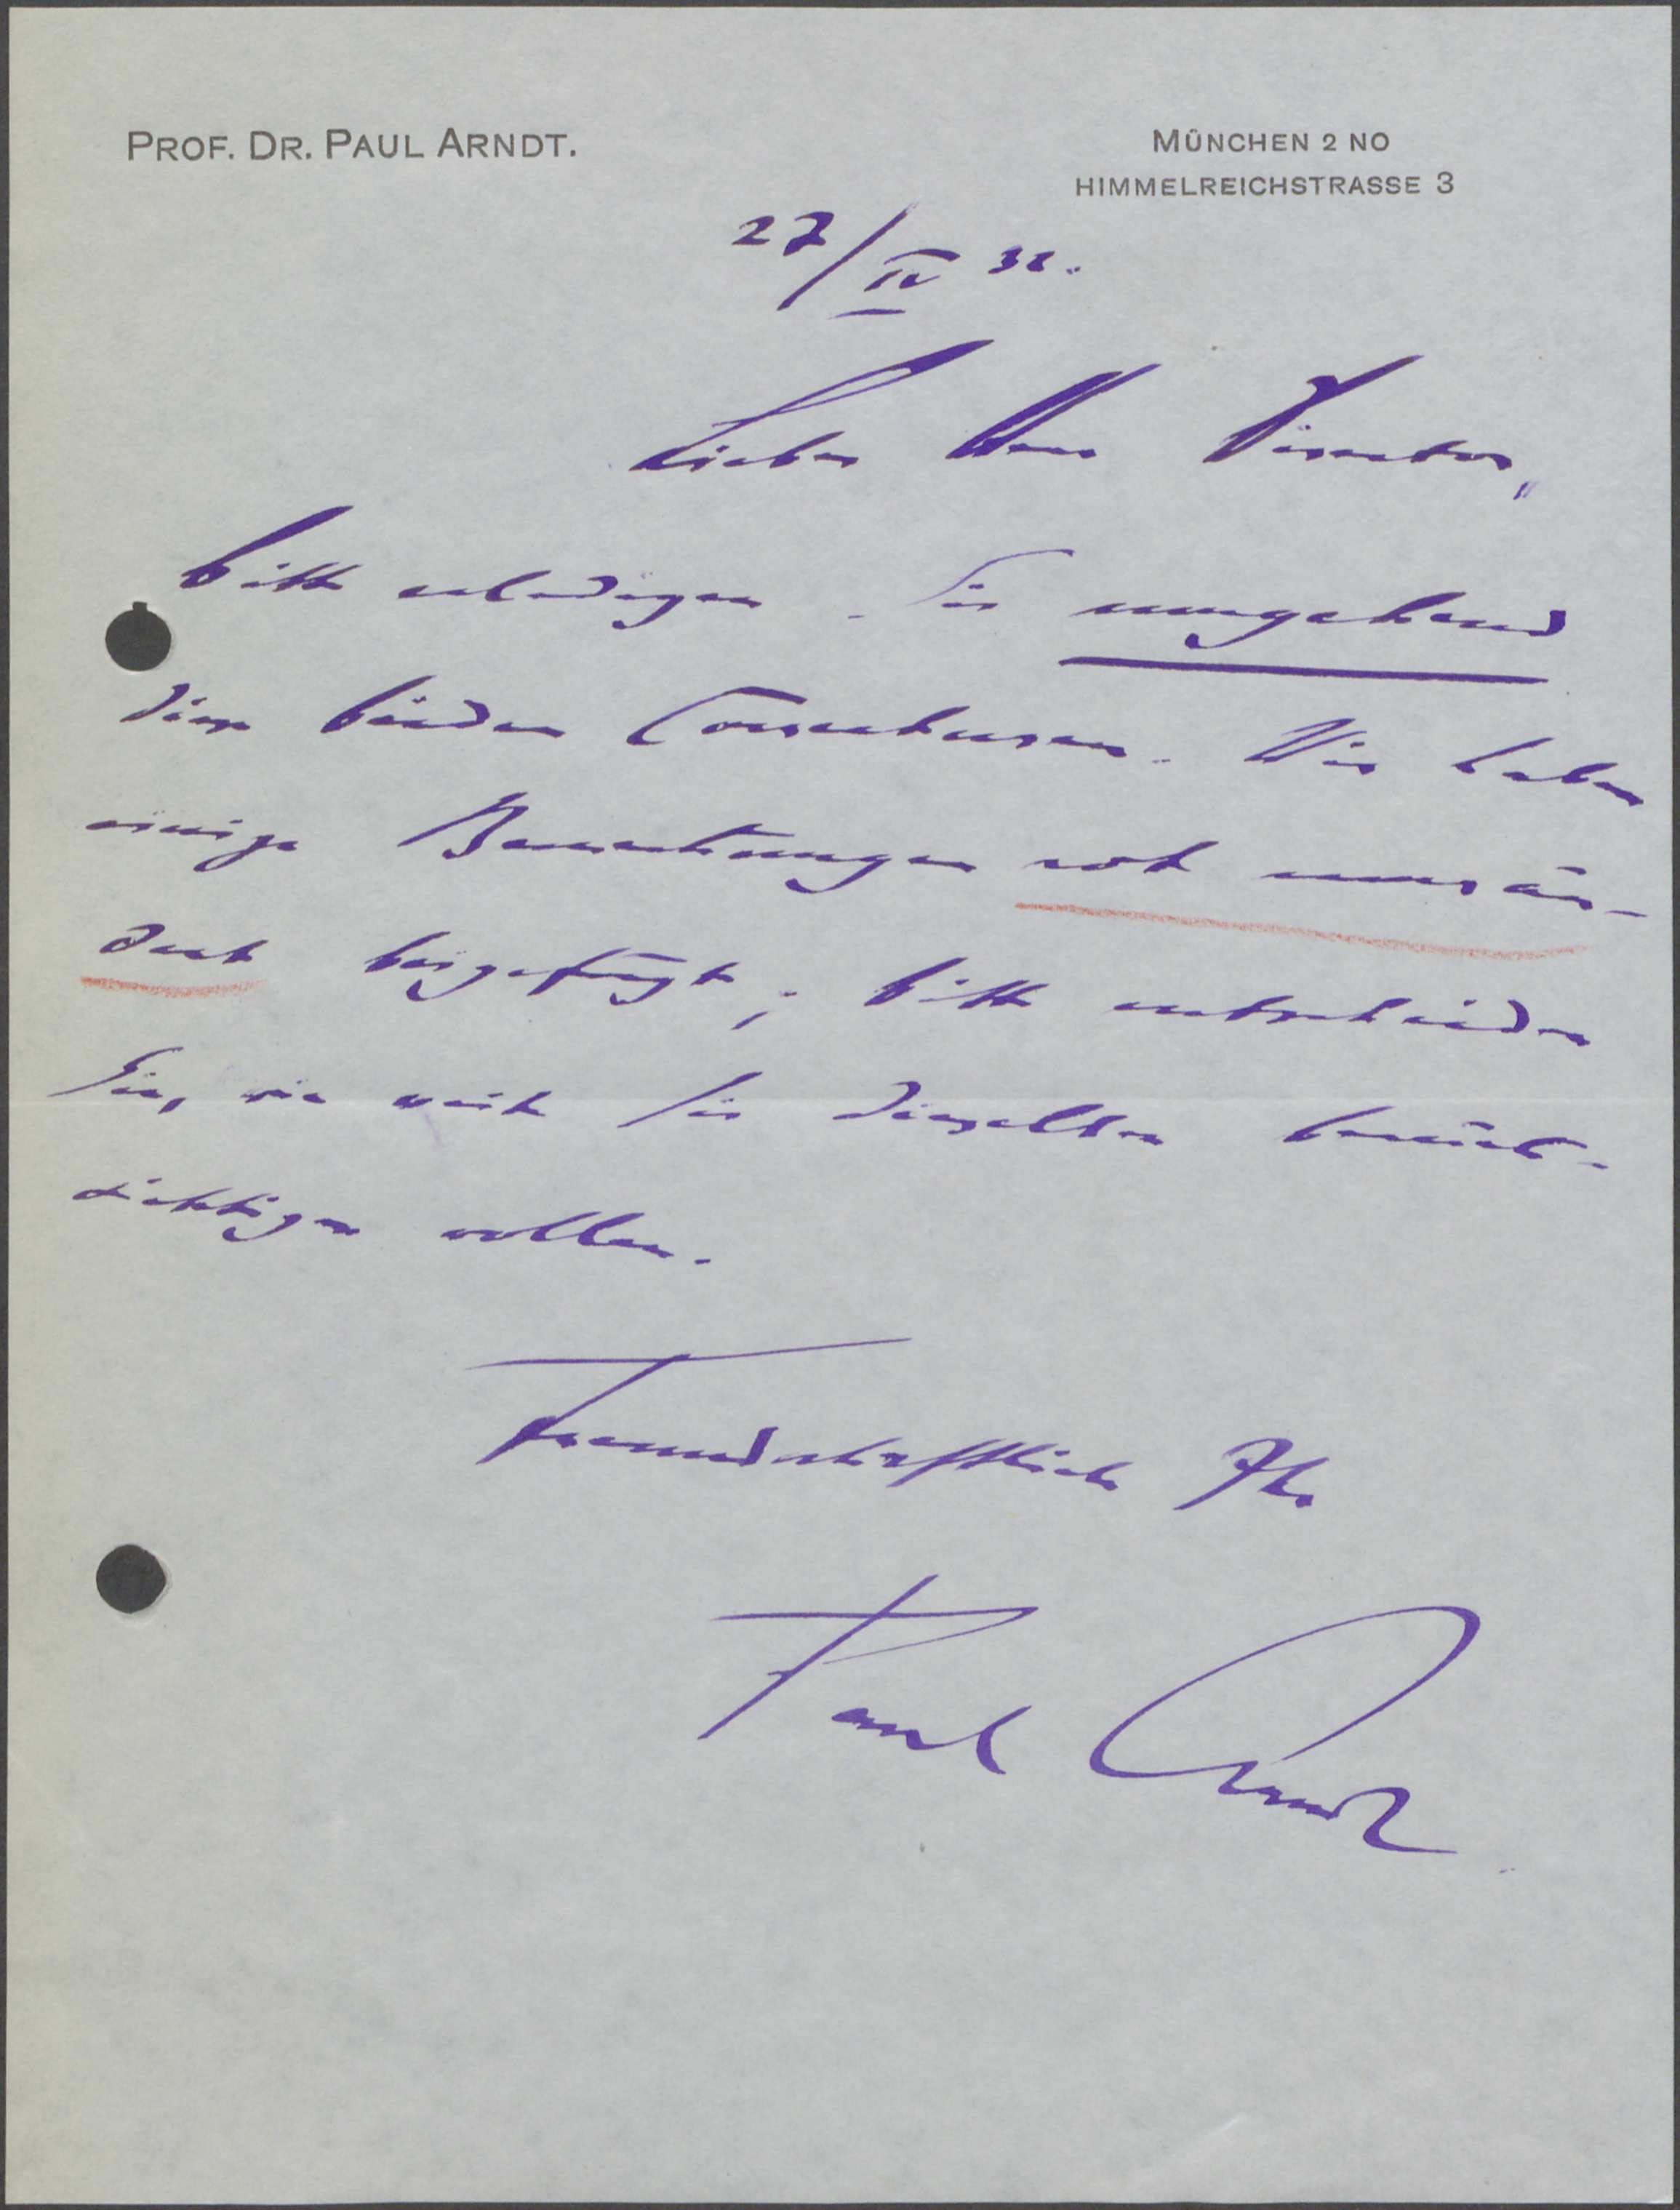 PROF. DR. PAUL ARNDT.
MÜNCHEN 2 NO
HIMMELREICHSTRASSE 3
27/IV 32.
Lieber Herr Direktor,
bitte erledigen Sie umgehend
diese beiden Correkturen. Wir haben
einige Bemerkungen rot umrän-
dert beigefügt; bitte entscheiden
Sie, wie weit Sie dieselben berück-
sichtigen wollen.
Freundschaftlich Ihr
Paul Arndt